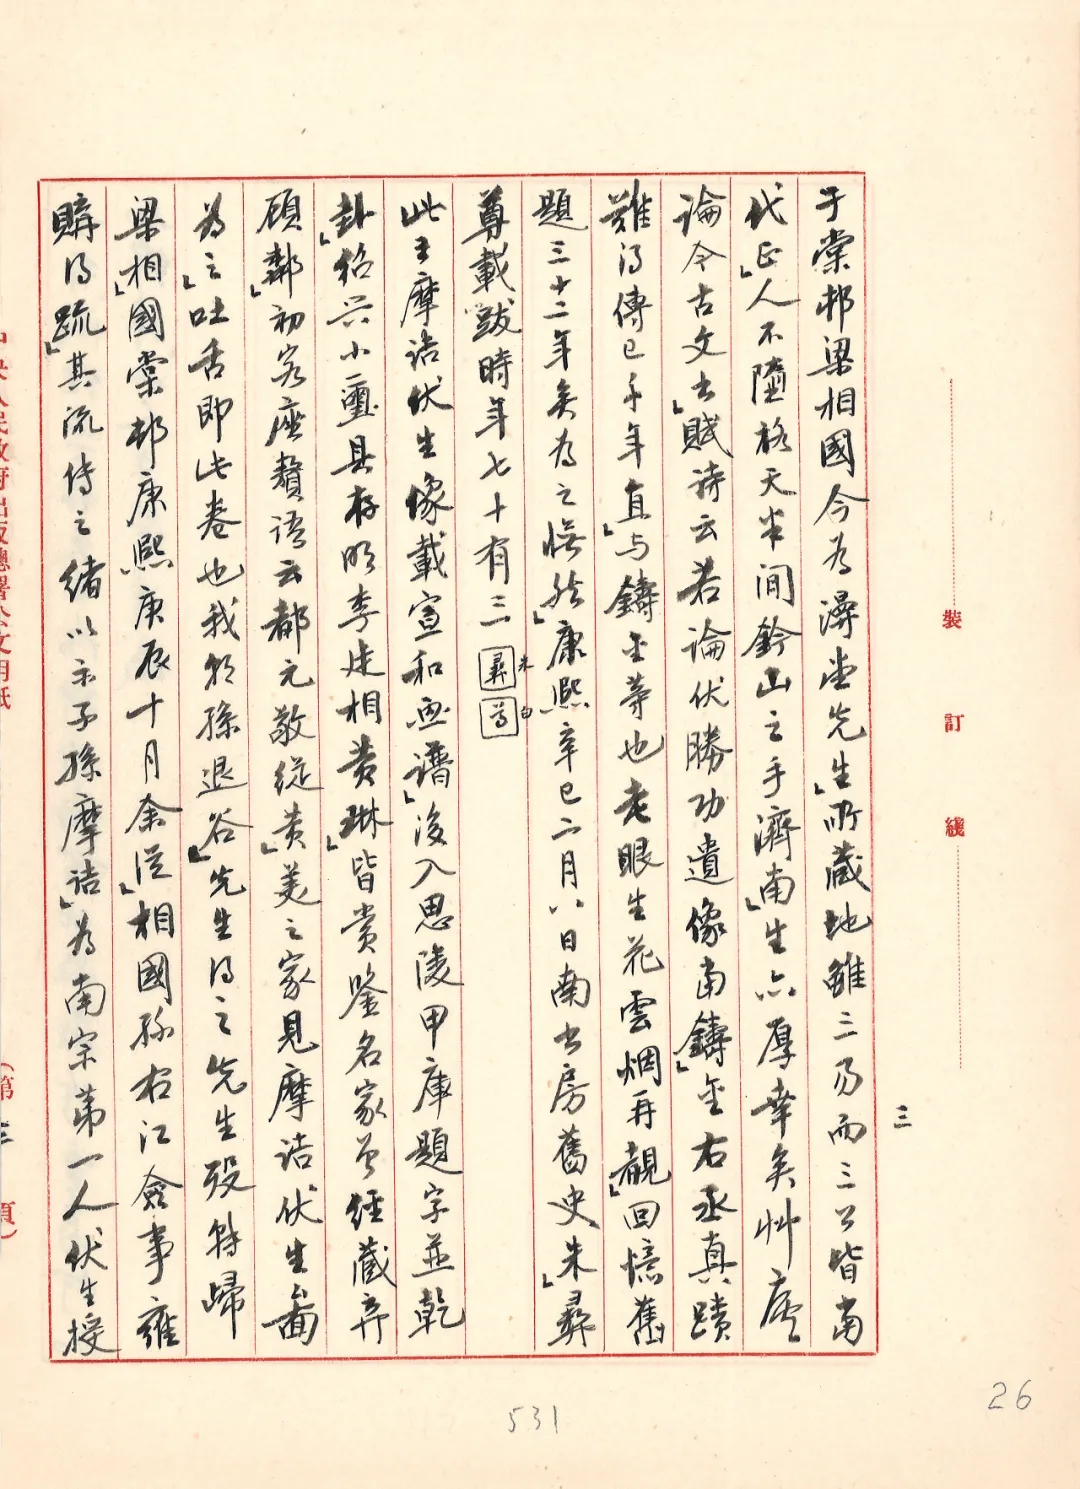 三
于棠邨梁相國今為漫堂先生所藏地雖三易而三公皆當
代正人不墮格天半間鈐山之手濟南生亦厚幸矣艸廬
論今古文書賦詩云若論伏勝功遺像當鑄金右丞真蹟
難得傳已千年直与鑄金等也老眼生花雲烟再覩回憶舊
題三十二年矣為之悵然康熙辛巳六月八日南書房舊史朱彞
尊載跋時年七十有三 彞 尊 朱 白
此王摩詰伏生像載宣和画譜後入思陵甲庫題字並乾
卦紹兴小璽具存明李建相黄琳皆賞鉴名家曾經藏弆
顧鄰初客座贅語云都元敬從黄美之家見摩詰伏生圖
為之吐舌即此卷也我朝孫退谷先生得之先生殁轉歸
梁相國棠邨康熙庚辰十月余從相國孫右江僉事雍
購得疏其流传之緒以示子孫摩詰為南宗第一人伏生授
装 訂 綫
中央人民政府出版總署公文用紙
（第三頁）
531
26